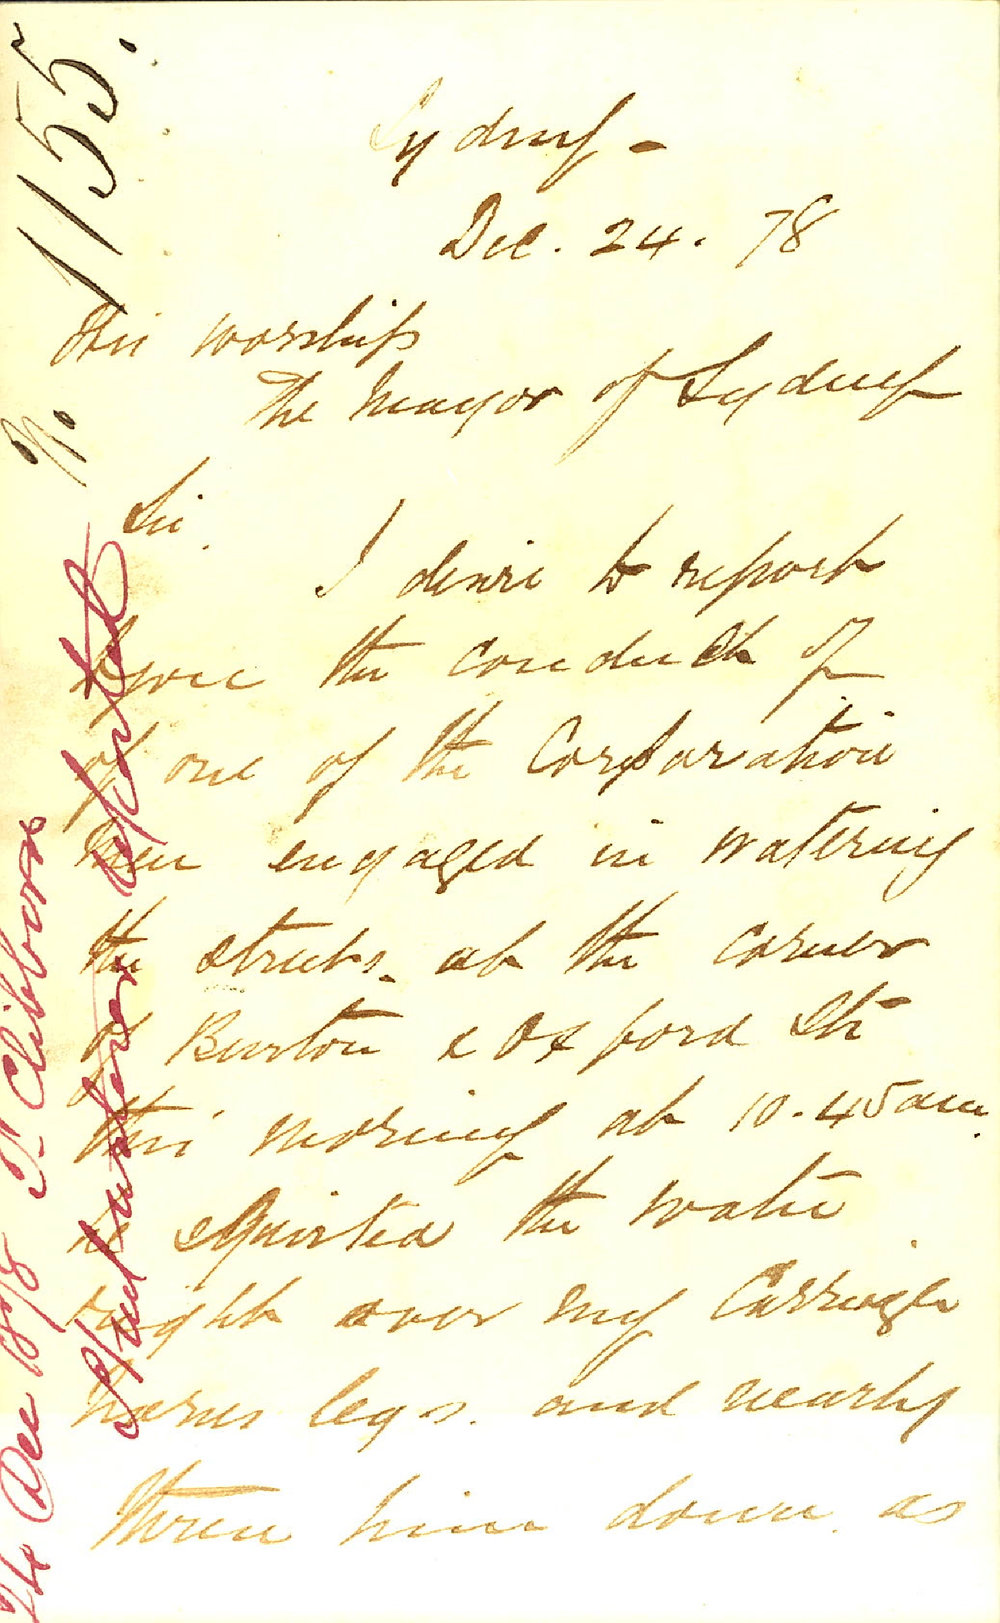 Sydney -
Dec. 24. 78
His worship
The Mayor of Sydney
Sir.
I desire to report
to you the conduct of
of one of the Corporation
men engaged in watering
the streets. at the corner
of Burton & Oxford Sts
this morning at 10.45 am.
he squirted the water
right over my Carriage
horses legs. and nearly
threw him down. as
No. 1155.
24 Dec 1878 J. Clibborn
reported